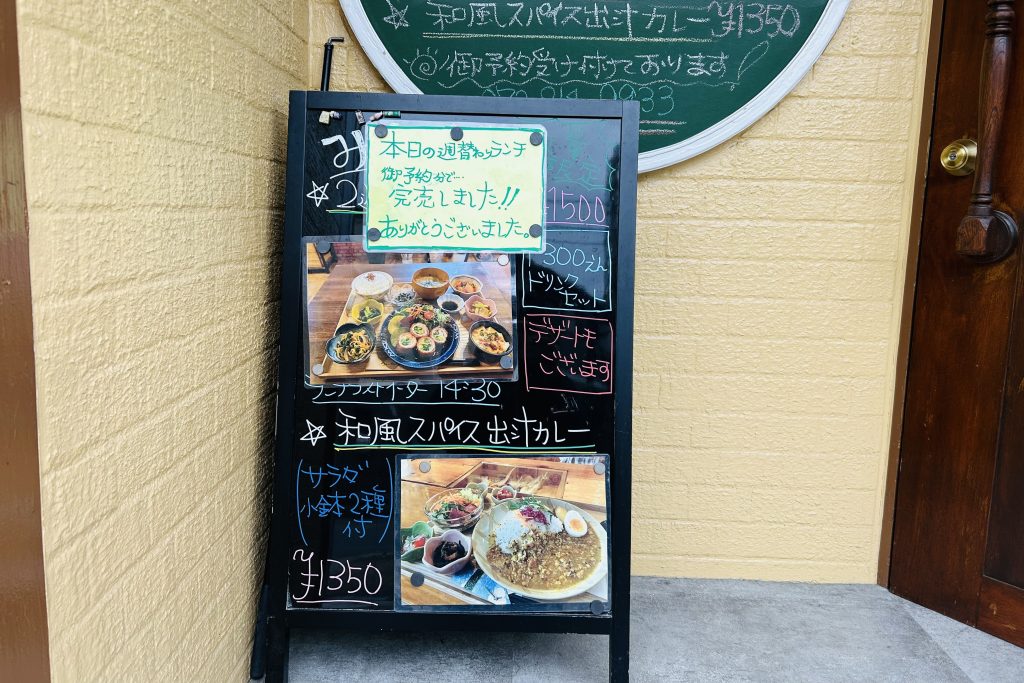 ☆和風スパイス出汁カレー ¥1350
御予約受け付けております!
0933
み
本日の週替わりランチ
御予約分で…
完売しました!!
ありがとうございました。
☆2
1500
300えん
ドリンク
セット
デザートも
ございます
ランチラストオーダー 14:30
☆和風スパイス出汁カレー
(サラダ
小鉢2種
付)
¥1350